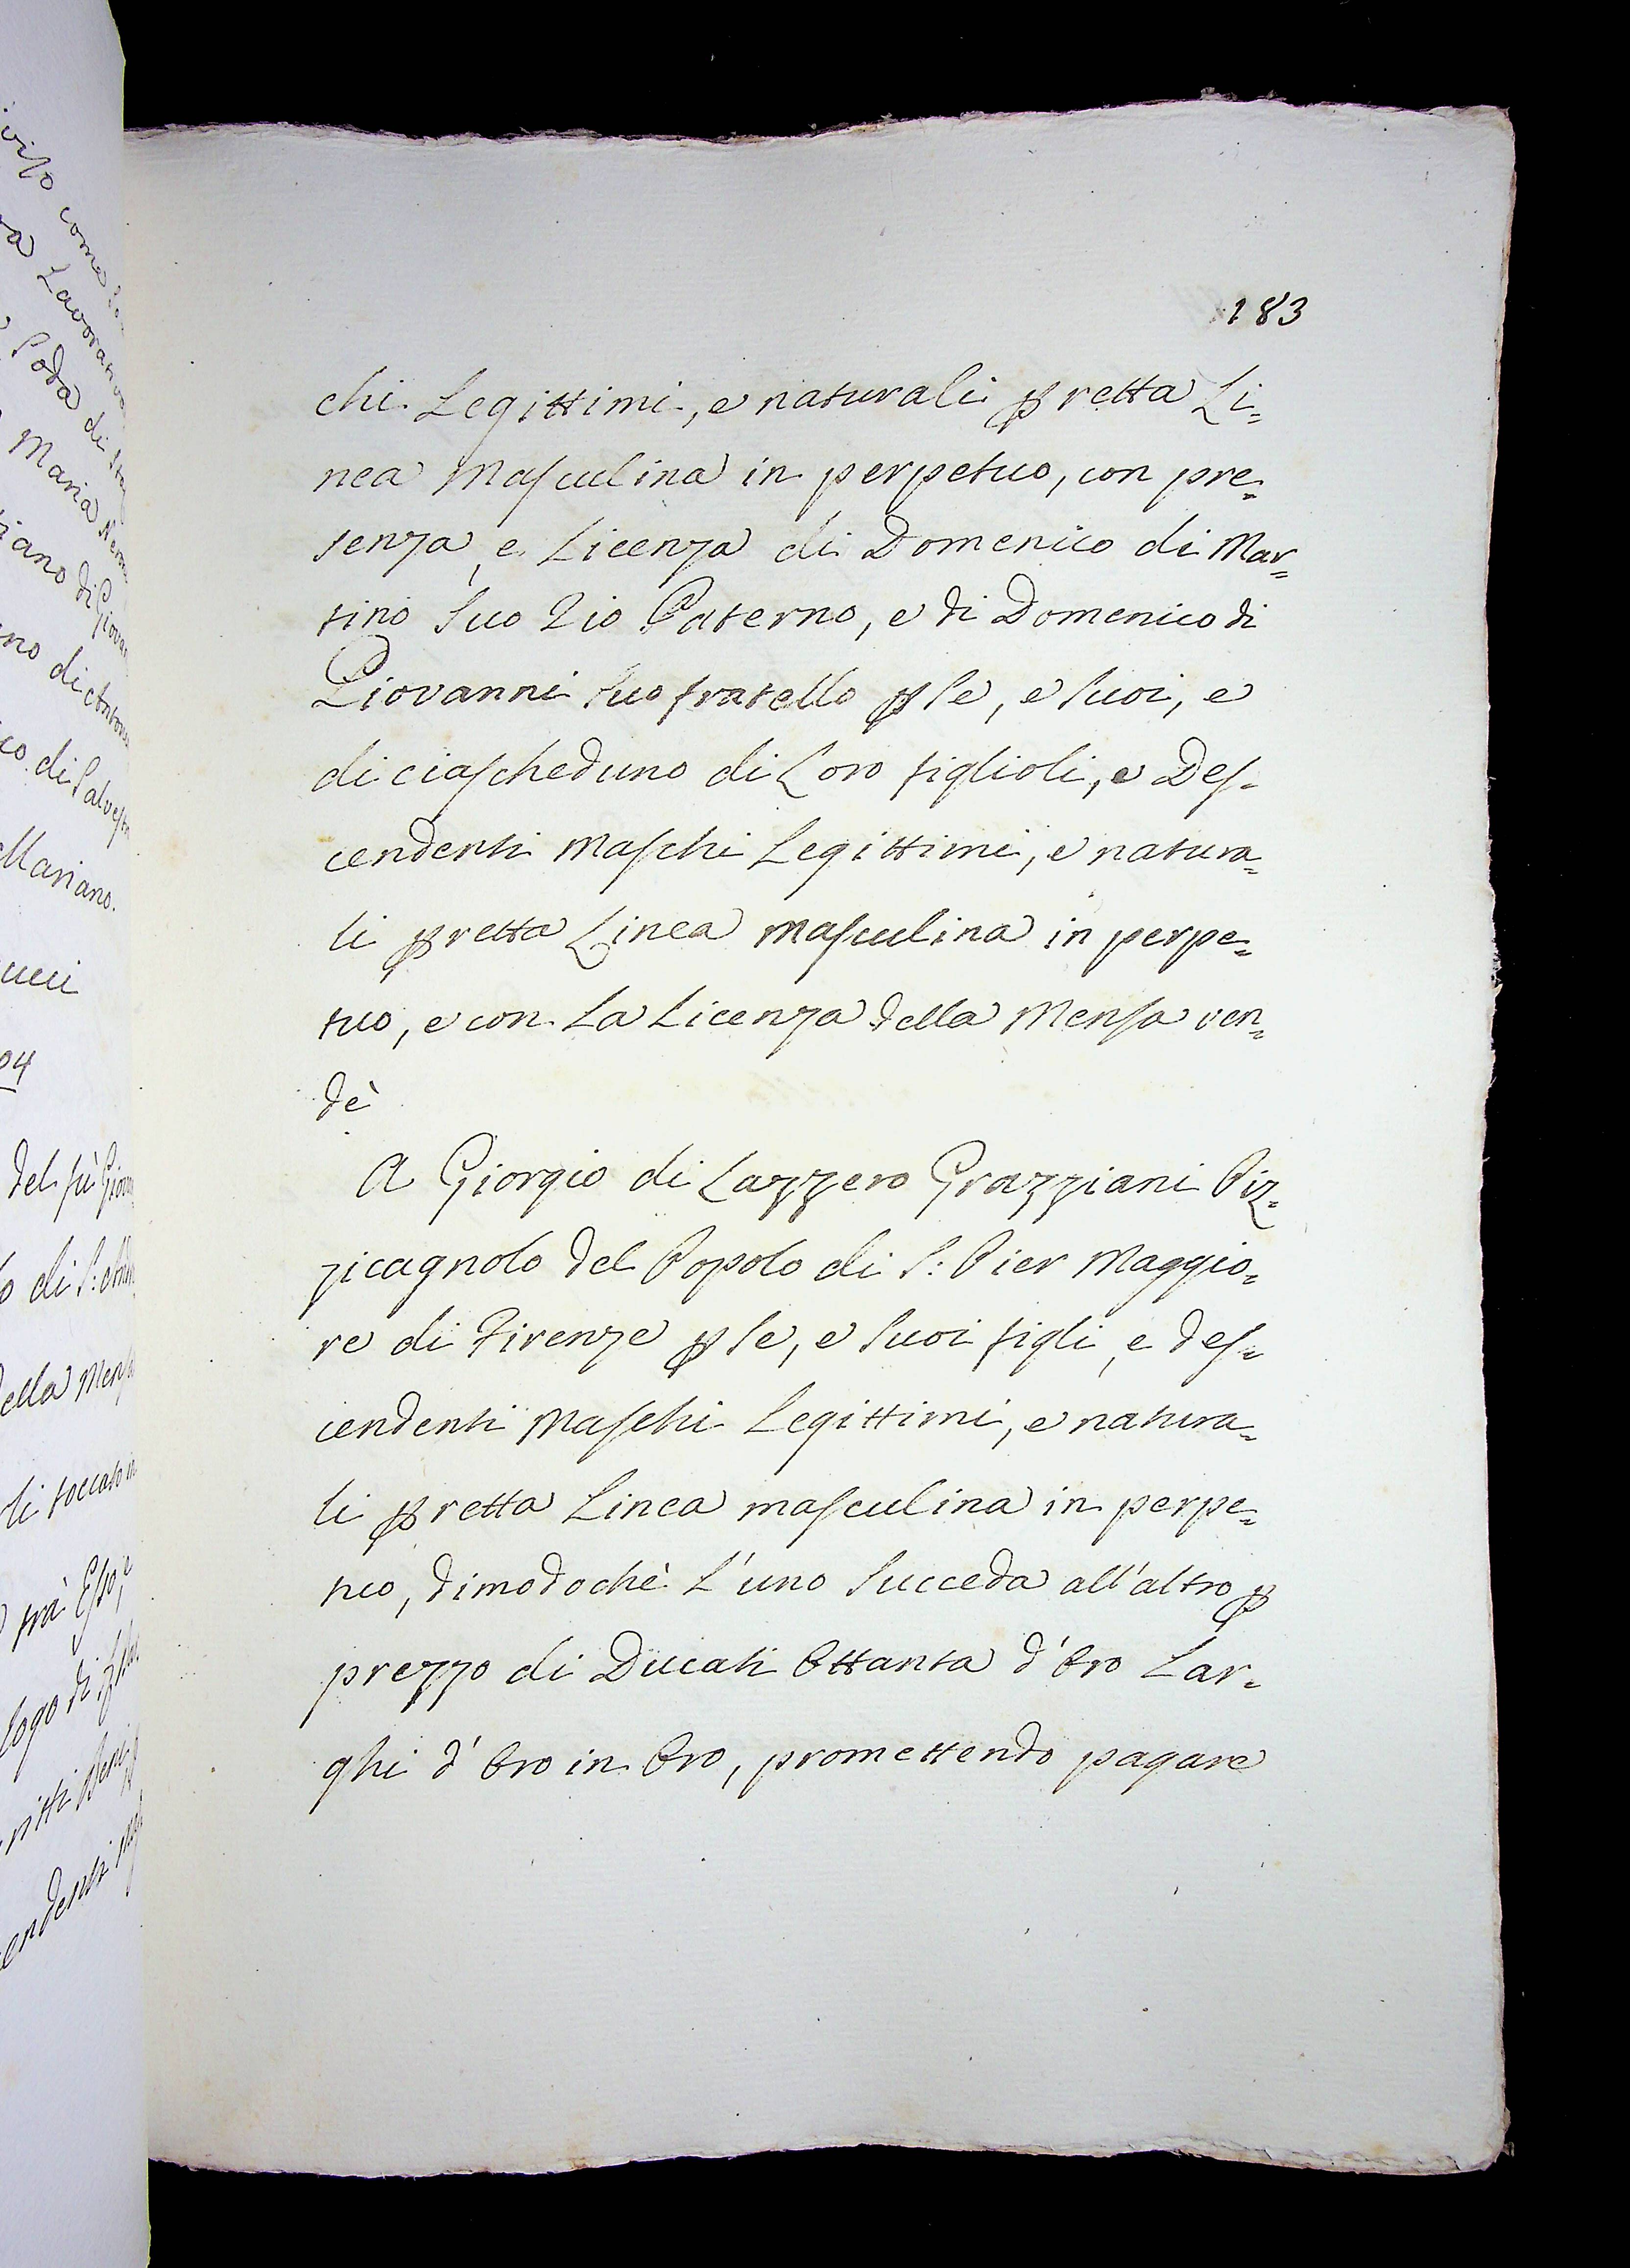 183
chi Legittimi, e naturali ꝑ retta Li=
nea Masculina in perpetuo, con pre=
senza, e Licenza di Domenico di Mar=
tino Suo Zio Paterno, e di Domenico di
Giovanni Suo fratello ꝑ Se, e Suoi, e
di ciascheduno di Loro figlioli, e Des=
cendenti Maschi Legittimi, e natura=
li ꝑ retta Linea Masculina in perpe=
tuo, e con La Licenza della Mensa ven=
dè
A Giorgio di Lazzero Grazziani Piz=
zicagnolo del Popolo di S: Pier Maggio=
re di Firenze ꝑ Se, e Suoi figli, e des=
cendenti Maschi Legittimi, e natura=
li ꝑ retta Linea masculina in perpe=
tuo, dimodochè L'uno Succeda all'altro ꝑ
prezzo di Ducati Ottanta d'Oro Lar=
ghi d'Oro in Oro, promettendo pagare